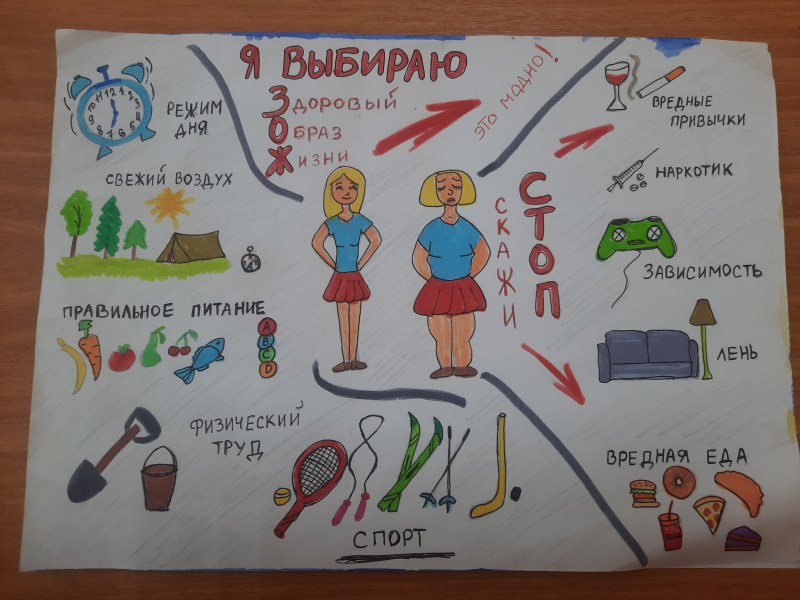 Я ВЫБИРАЮ
ЗДОРОВЫЙ
ОБРАЗ
ЖИЗНИ
ЭТО МОДНО!
РЕЖИМ
ДНЯ
СВЕЖИЙ ВОЗДУХ
ПРАВИЛЬНОЕ ПИТАНИЕ
A
B
C
D
ФИЗИЧЕСКИЙ
ТРУД
СПОРТ
СКАЖИ
СТОП
ВРЕДНЫЕ
ПРИВЫЧКИ
НАРКОТИК
ЗАВИСИМОСТЬ
ЛЕНЬ
ВРЕДНАЯ ЕДА